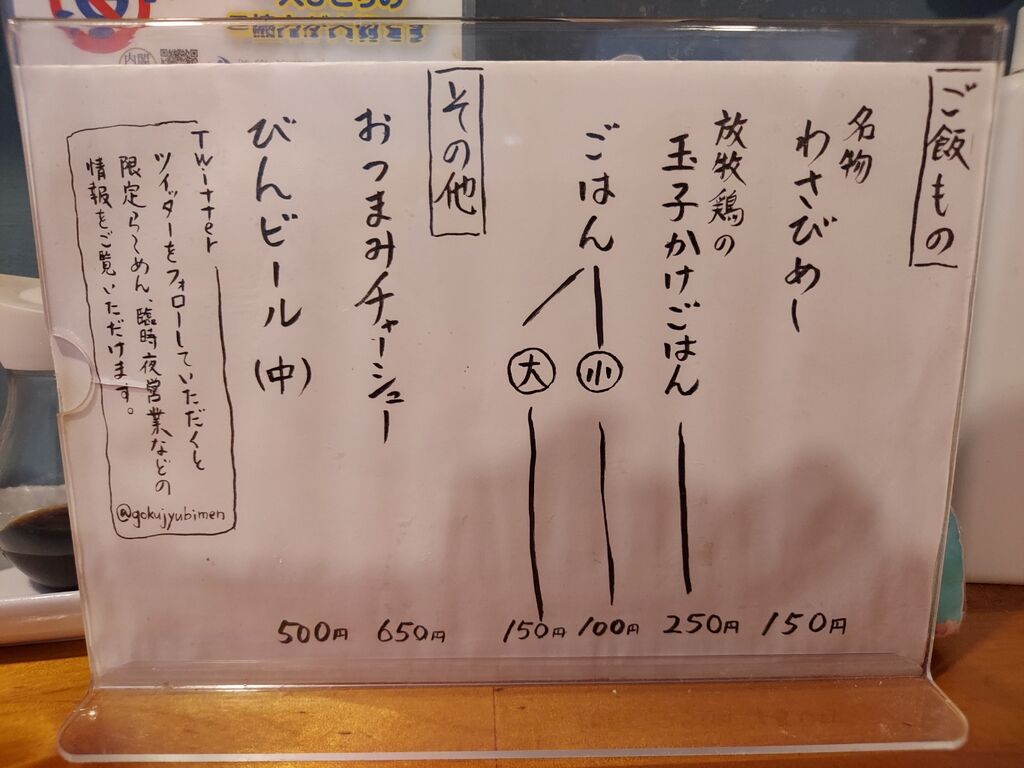 ご飯もの
名物
わさびめー
150円
放牧鶏の
玉子かけごはん
250円
ごはん
小
100円
大
150円
その他
おつまみチャーシュー
650円
びんビール(中)
500円
Twitter
ツイッターをフォローしていただくと
限定らーめん、臨時夜営業などの
情報をご覧いただけます。
@gokujyubimen